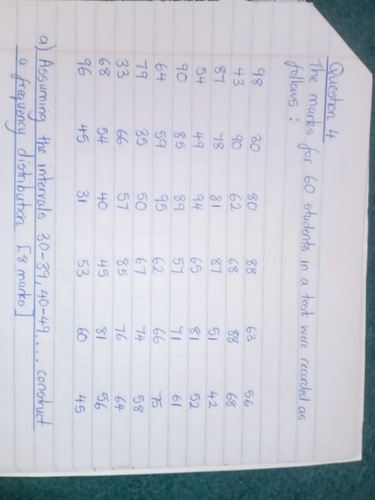 Question 4
The marks for 60 students in a test were recorded as
follows:
98 30 80 88 63 56
43 90 62 68 88 68
87 78 81 87 51 42
54 49 94 65 81 52
90 85 89 57 71 61
64 59 95 62 66 75
79 35 50 67 74 58
33 66 57 85 76 64
68 54 40 45 81 56
96 45 31 53 60 45
a) Assuming the intervals 30-39, 40-49.... construct
a frequency distribution [8 marks]